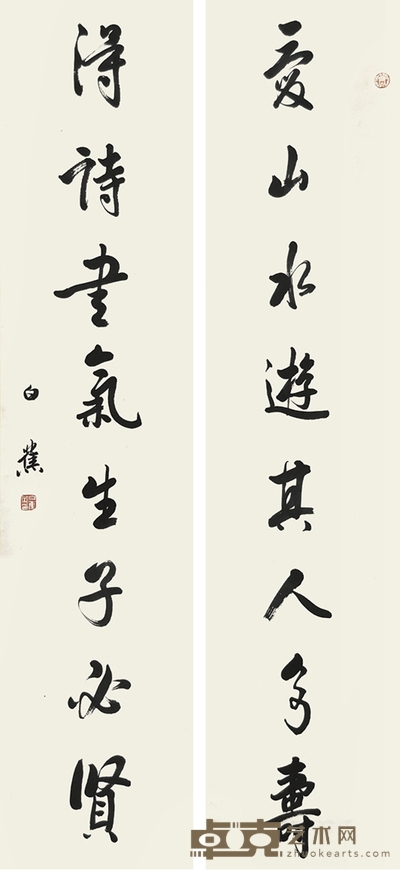 愛山水遊其人多壽
得詩書氣生子必賢
白蕉
卓克艺术网
zhuokearts.com